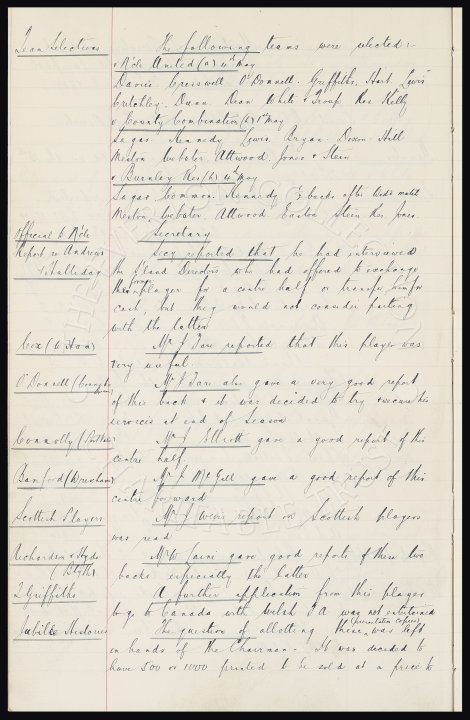 Team Selections The following teams were selected :-
v Nele United (a) 11th May
Davies Cresswell O'Donnell. Griffiths. Hart Lewis
Critchley. Dunn Dean White & Troup Res Kelly
v County Combination (h) 1st May
Sagar Kennedy Lewis Bryan Dixon Hill
Weston Webster Attwood. Jones & Steen
v Burnley Res (h) 4th May
Sagar Common. Kennedy
Weston, Webster Attwood Easton Steen Res Jones.
Official to Nele Secretary
Report re Andrews Secy reported that he had interviewed
& Halliday the Directors who had offered to exchange
the player for a centre half or transfer him for
cash, but they would not consider parting
with the latter
Cox (W Ham) Mr J Tare reported that this player was
very useful
O'Donnell Mr J Tare also gave a very good report
of this back & it was decided to try & secure his
services at end of Season
Connolly Mr J Elliott gave a good report of this
centre half
Bamford (Wrexham) Mr J McGill gave a good report of this
centre forward
Scottish Players Mr J Weir report on Scottish players
was read
Richardson & Hyde Mr W gave good reports of these two
(Blyth) backs especially the latter
J Griffiths A further application from this player
to go to Canada with Welsh F A was not entertained
Jubilee Histories The question of allotting these (presentation copies) was left
in hands of the Chairman. It was decided to
have 500 or 1000 printed to be sold at a price to